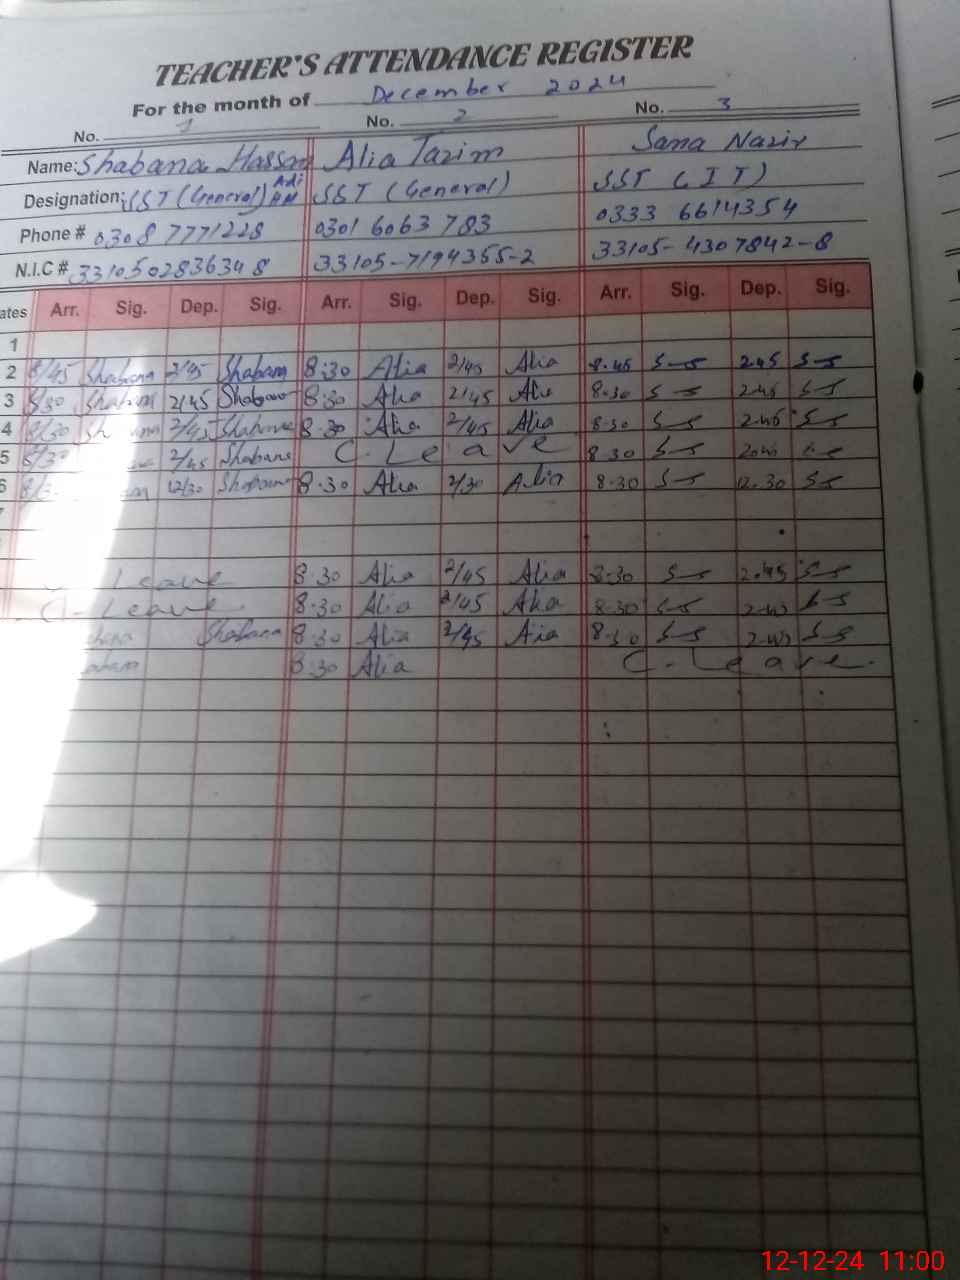 TEACHER'S ATTENDANCE REGISTER
For the month of December 2024
No. 1 No. 2 No. 3
Name: Shabana Hassan Alia Tazim Sana Nazir
Designation: SST (General) SST (General) SST (IT)
Phone # 0308 7771228 0301 6063 783 0333 6614354
N.I.C # 3310502836348 33105-7194355-2 33105-4307842-8
ates Arr. Sig. Dep. Sig. Arr. Sig. Dep. Sig. Arr. Sig. Dep. Sig.
1
2 8/45 Shabana 2/45 Shabana 8:30 Alia 2/45 Alia 8.45 S-S 2.45 S-S
3 8/30 Shabana 2/45 Shabana 8:30 Alia 2/45 Alia 8.30 S-S 2.45 S-S
4 8/30 2/45 Shabana 8.30 Alia 2/45 Alia 8.30 S-S 2.45 S-S
5 2/45 Shabana C. Leave 8.30 S-S
6 12/30 Shabana 8.30 Alia 2/30 Alia 8.30 S-S 12.30 S-S
Leave 8.30 Alia 2/45 Alia 8.30 S-S 2.45 S-S
C-Leave 8.30 Alia 2/45 Alia 8.30 S-S S-S
Shabana 8:30 Alia 2/45 Alia 8.30 S-S S-S
8:30 Alia C. Leave.
12-12-24 11:00